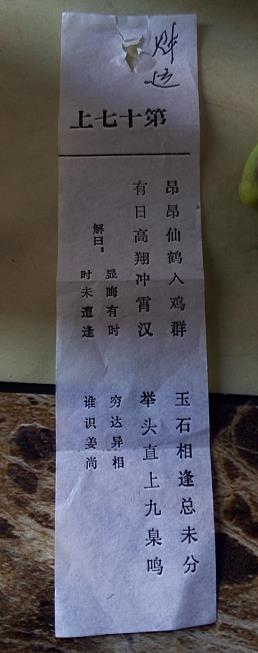 财运
第十七上
昂昂仙鹤入鸡群
玉石相逢总未分
有日高翔冲霄汉
举头直上九臬鸣
解曰：
显晦有时
穷达异相
时未遭逢
谁识姜尚